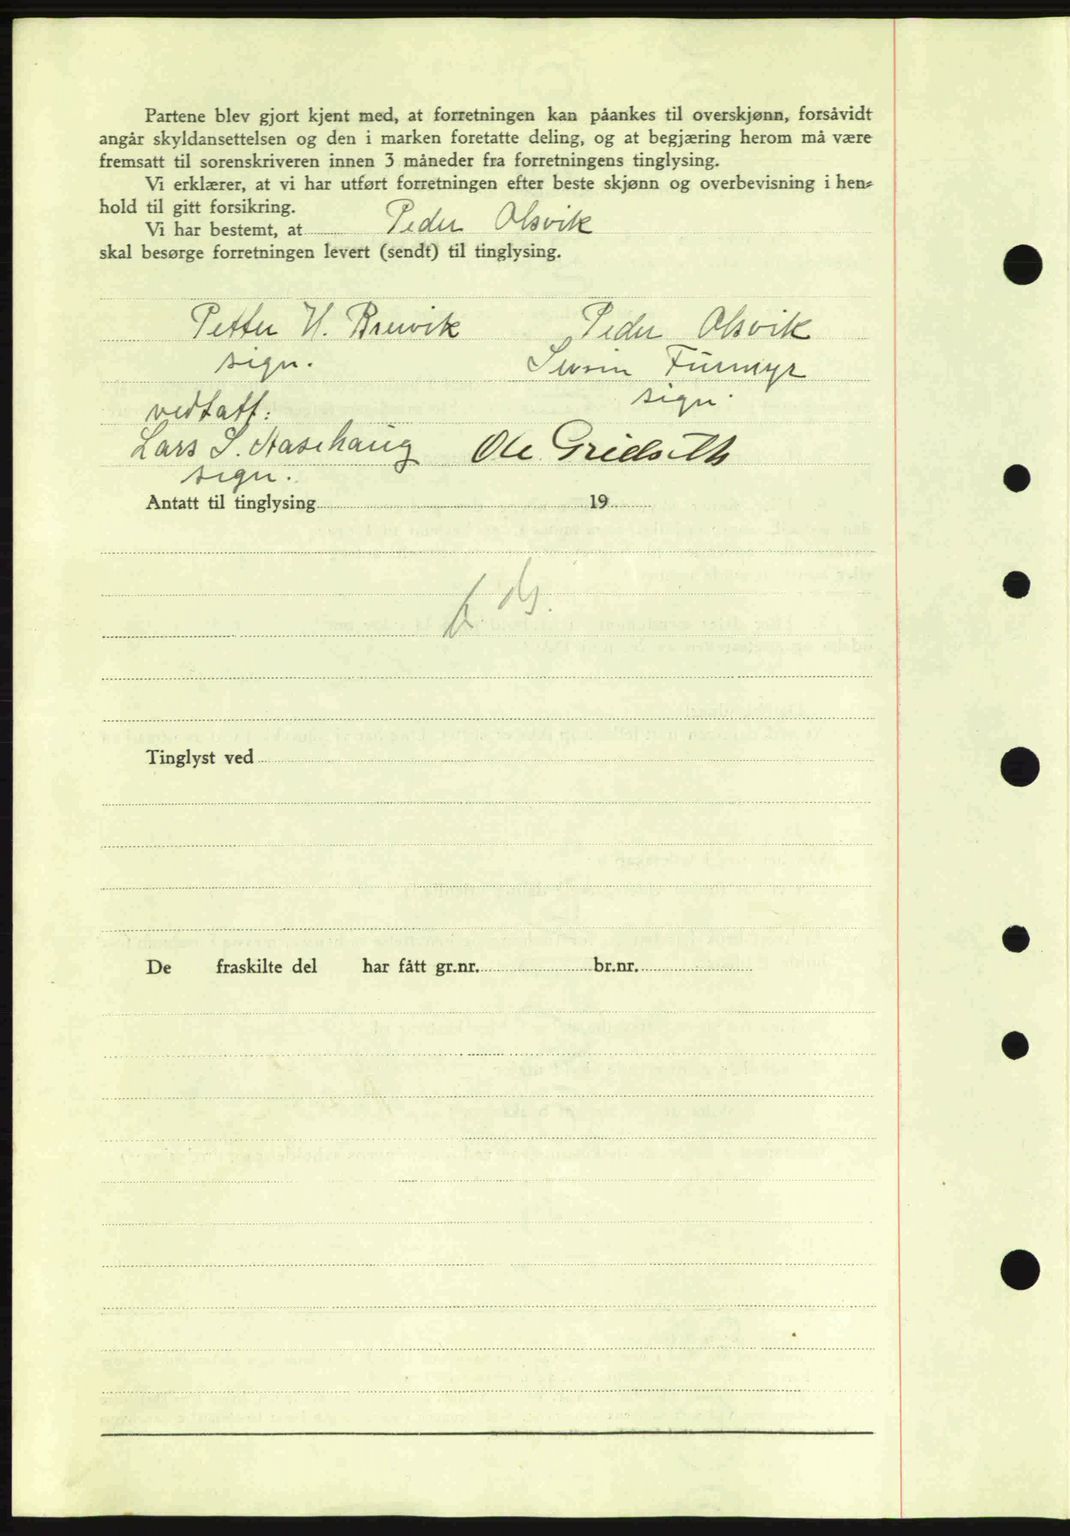 Partene blev gjort kjent med, at forretningen kan påankes til overskjønn, forsåvidt
angår skyldansettelsen og den i marken foretatte deling, og at begjæring herom må være
fremsatt til sorenskriveren innen 3 måneder fra forretningens tinglysing.
Vi erklærer, at vi har utført forretningen efter beste skjønn og overbevisning i hen-
hold til gitt forsikring.
Vi har bestemt, at Peder Alsvik
skal besørge forretningen levert (sendt) til tinglysing.
Petter H. Brevik Peder Alsvik
sign. Sevrin Furmyr
sign.
vedtatt:
Lars S. Aasehaug Ole Gridseth
sign.
Antatt til tinglysing 19
Tinglyst ved
De fraskilte del har fått gr.nr. br.nr.